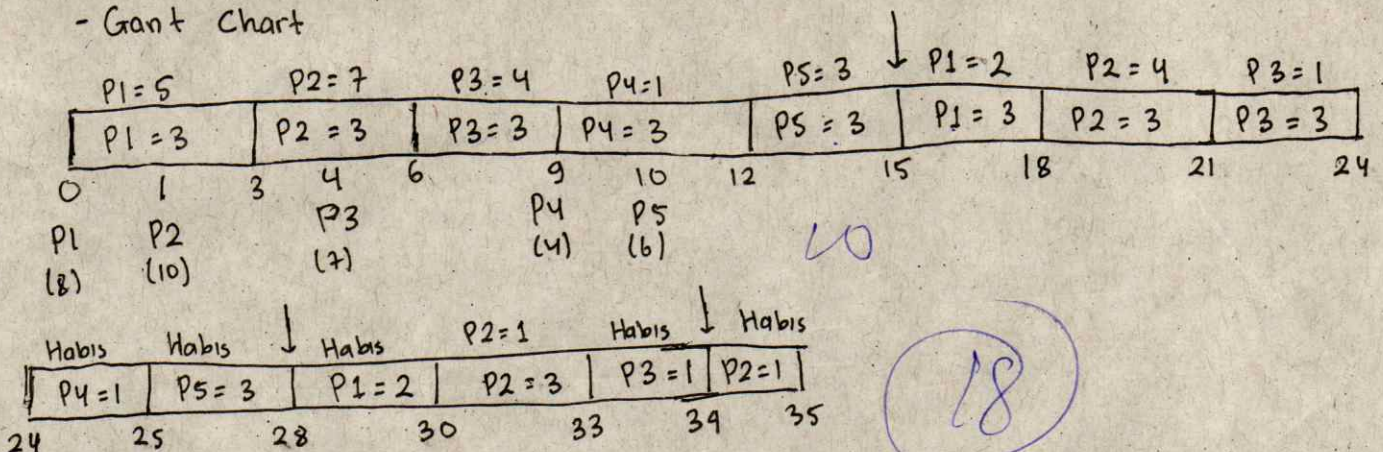 - Gant Chart
P1=5 P2=7 P3=4 P4=1 P5=3 ↓ P1=2 P2=4 P3=1
P1=3 P2=3 P3=3 P4=3 P5=3 P1=3 P2=3 P3=3
0 1 3 4 6 9 10 12 15 18 21 24
P1 P2 P3 P4 P5
(8) (10) (7) (4) (6)
Habis Habis ↓ Habis P2=1 Habis ↓ Habis
P4=1 P5=3 P1=2 P2=3 P3=1 P2=1
24 25 28 30 33 34 35
18